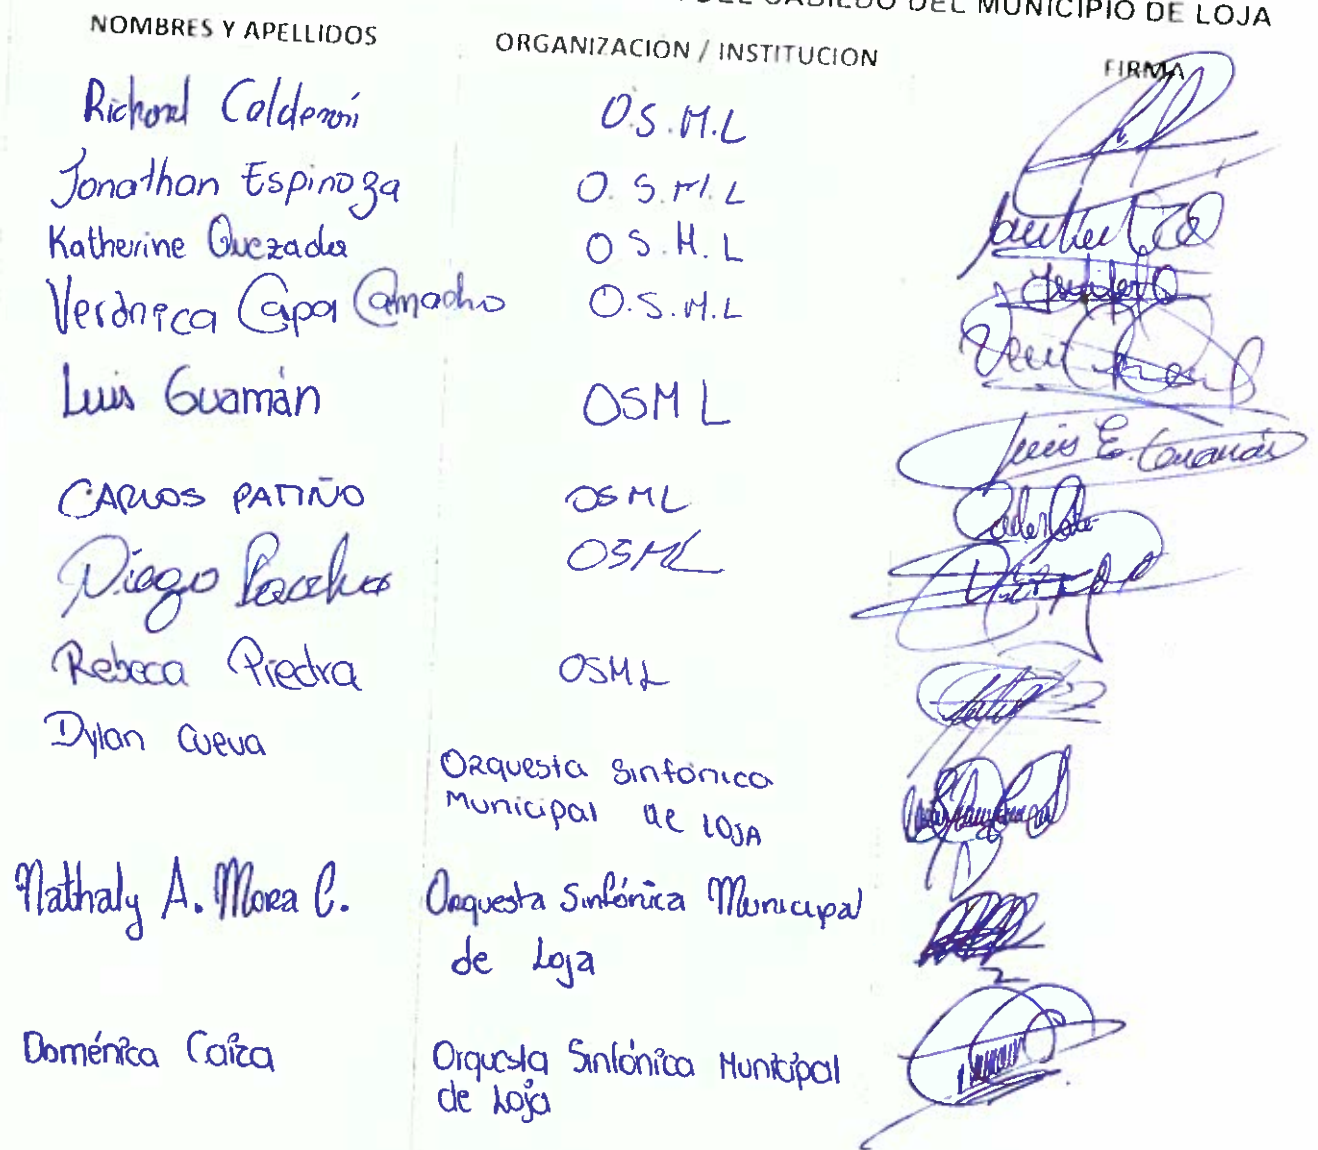 DEL CABILDO DEL MUNICIPIO DE LOJA
NOMBRES Y APELLIDOS ORGANIZACION / INSTITUCION FIRMA
Richard Calderón O.S.M.L
Jonathan Espinoza O.S.M.L
Katherine Quezada O.S.M.L
Verónica Capa Camacho O.S.M.L
Luis Guamán OSML
Luis E. Guamán
CARLOS PATIÑO OSML
Diego Pacheco OSML
Rebeca Piedra OSML
Dylan Cueva
Orquesta Sinfónica
Municipal de LOJA
Nathaly A. Mora C. Orquesta Sinfónica Municipal
de Loja
Doménica Caiza Orquesta Sinfónica Municipal
de Loja